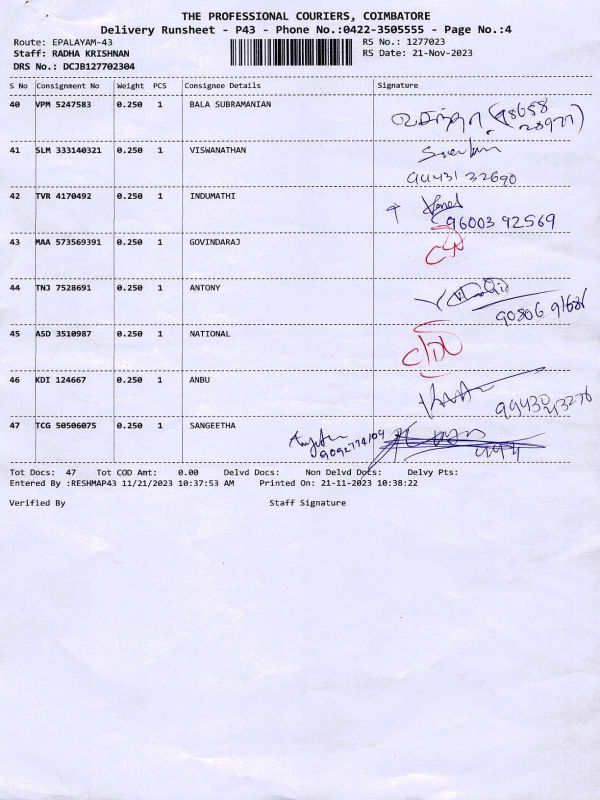 THE PROFESSIONAL COURIERS, COIMBATORE
Delivery Runsheet - P43 - Phone No.:0422-3505555 - Page No.:4
Route: EPALAYAM-43 RS No.: 1277023
Staff: RADHA KRISHNAN RS Date: 21-Nov-2023
DRS No.: DCJB127702304
S No Consignment No Weight PCS Consignee Details Signature
40 VPM 5247583 0.250 1 BALA SUBRAMANIAN
41 SLM 333140321 0.250 1 VISWANATHAN
94431 32690
42 TVR 4170492 0.250 1 INDUMATHI
96003 92569
43 MAA 573569391 0.250 1 GOVINDARAJ
44 TNJ 7528691 0.250 1 ANTONY
45 ASD 3510987 0.250 1 NATIONAL
46 KDI 124667 0.250 1 ANBU
99430
43276
47 TCG 50506075 0.250 1 SANGEETHA
Tot Docs: 47 Tot COD Amt: 0.00 Delvd Docs: Non Delvd Docs: Delvy Pts:
Entered By :RESHMAP43 11/21/2023 10:37:53 AM Printed On: 21-11-2023 10:38:22
Verified By Staff Signature